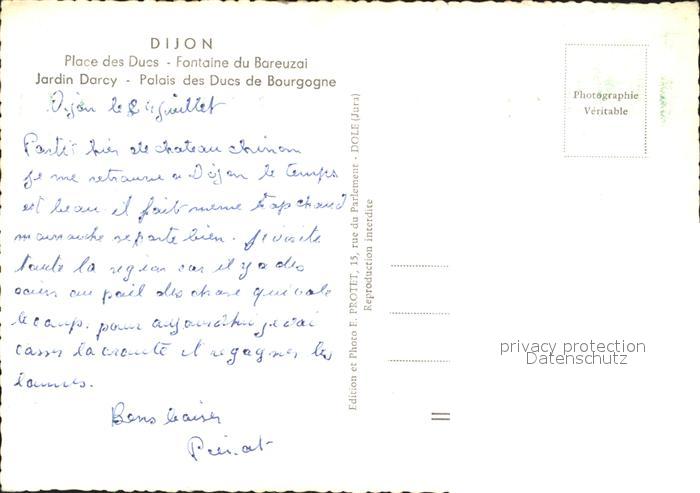 DIJON
Place des Ducs - Fontaine du Bareuzai
Jardin Darcy - Palais des Ducs de Bourgogne
Dijon le juillet
Parti hier de chateau chinon
je me retrouve a Dijon le temps
est beau il fait meme trop chaud
se porte bien. Je visite
toute la region car il y a des
coins au poil des chose qui vale
le coup. pour aujourdhui je vai
casser la croute et regagner les
Bons baiser
Edition et Photo E. PROTET, 15, rue du Parlement - DOLE (Jura)
Reproduction interdite
Photographie
Véritable
privacy protection
Datenschutz